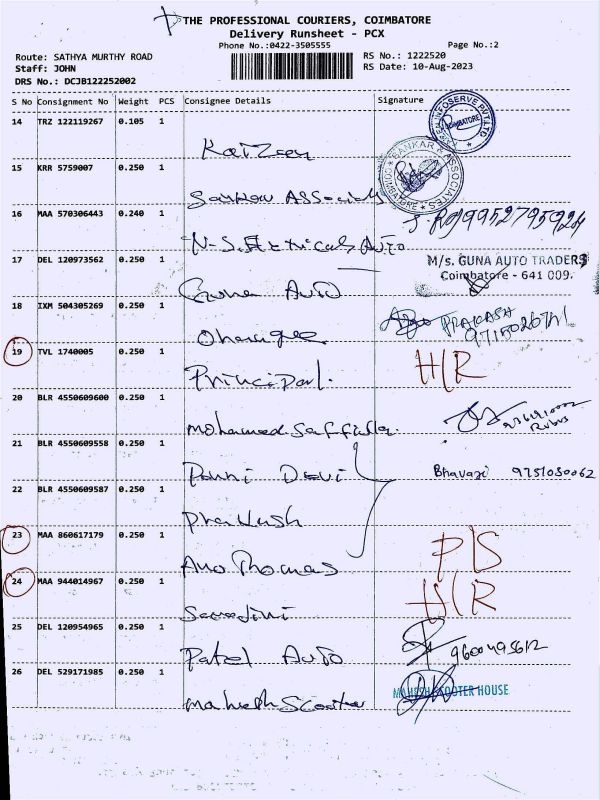 THE PROFESSIONAL COURIERS, COIMBATORE
Delivery Runsheet - PCX
Phone No.:0422-3505555 Page No.:2
Route: SATHYA MURTHY ROAD RS No.: 1222520
Staff: JOHN RS Date: 10-Aug-2023
DRS No.: DCJB122252002
S No Consignment No Weight PCS Consignee Details Signature
14 TRZ 122119267 0.105 1
INFOSERVE PVT.LTD
COIMBATORE
Kaizeen
15 KRR 5759007 0.250 1
SANKAR & ASSOCIATES
COIMBATORE
Sankar Associats
16 MAA 570306443 0.240 1
9952795924
N-S. Electricals Auto
17 DEL 120973562 0.250 1 M/s. GUNA AUTO TRADERS
Coimbatore - 641 009.
Guna Auto
18 IXM 504305269 0.250 1 PRAKASH
19 TVL 1740005 0.250 1 H/R
Principal.
20 BLR 4550609600 0.250 1
Mohamed
21 BLR 4550609558 0.250 1
Ponni Devi Bhavagi 9751030062
22 BLR 4550609587 0.250 1
Prakash
23 MAA 860617179 0.250 1 P/S
Anu Thomas
24 MAA 944014967 0.250 1 H/R
Sarojini
25 DEL 120954965 0.250 1 9600495612
Patel Auto
26 DEL 529171985 0.250 1 MAHESH SCOOTER HOUSE
Mahesh Scooter